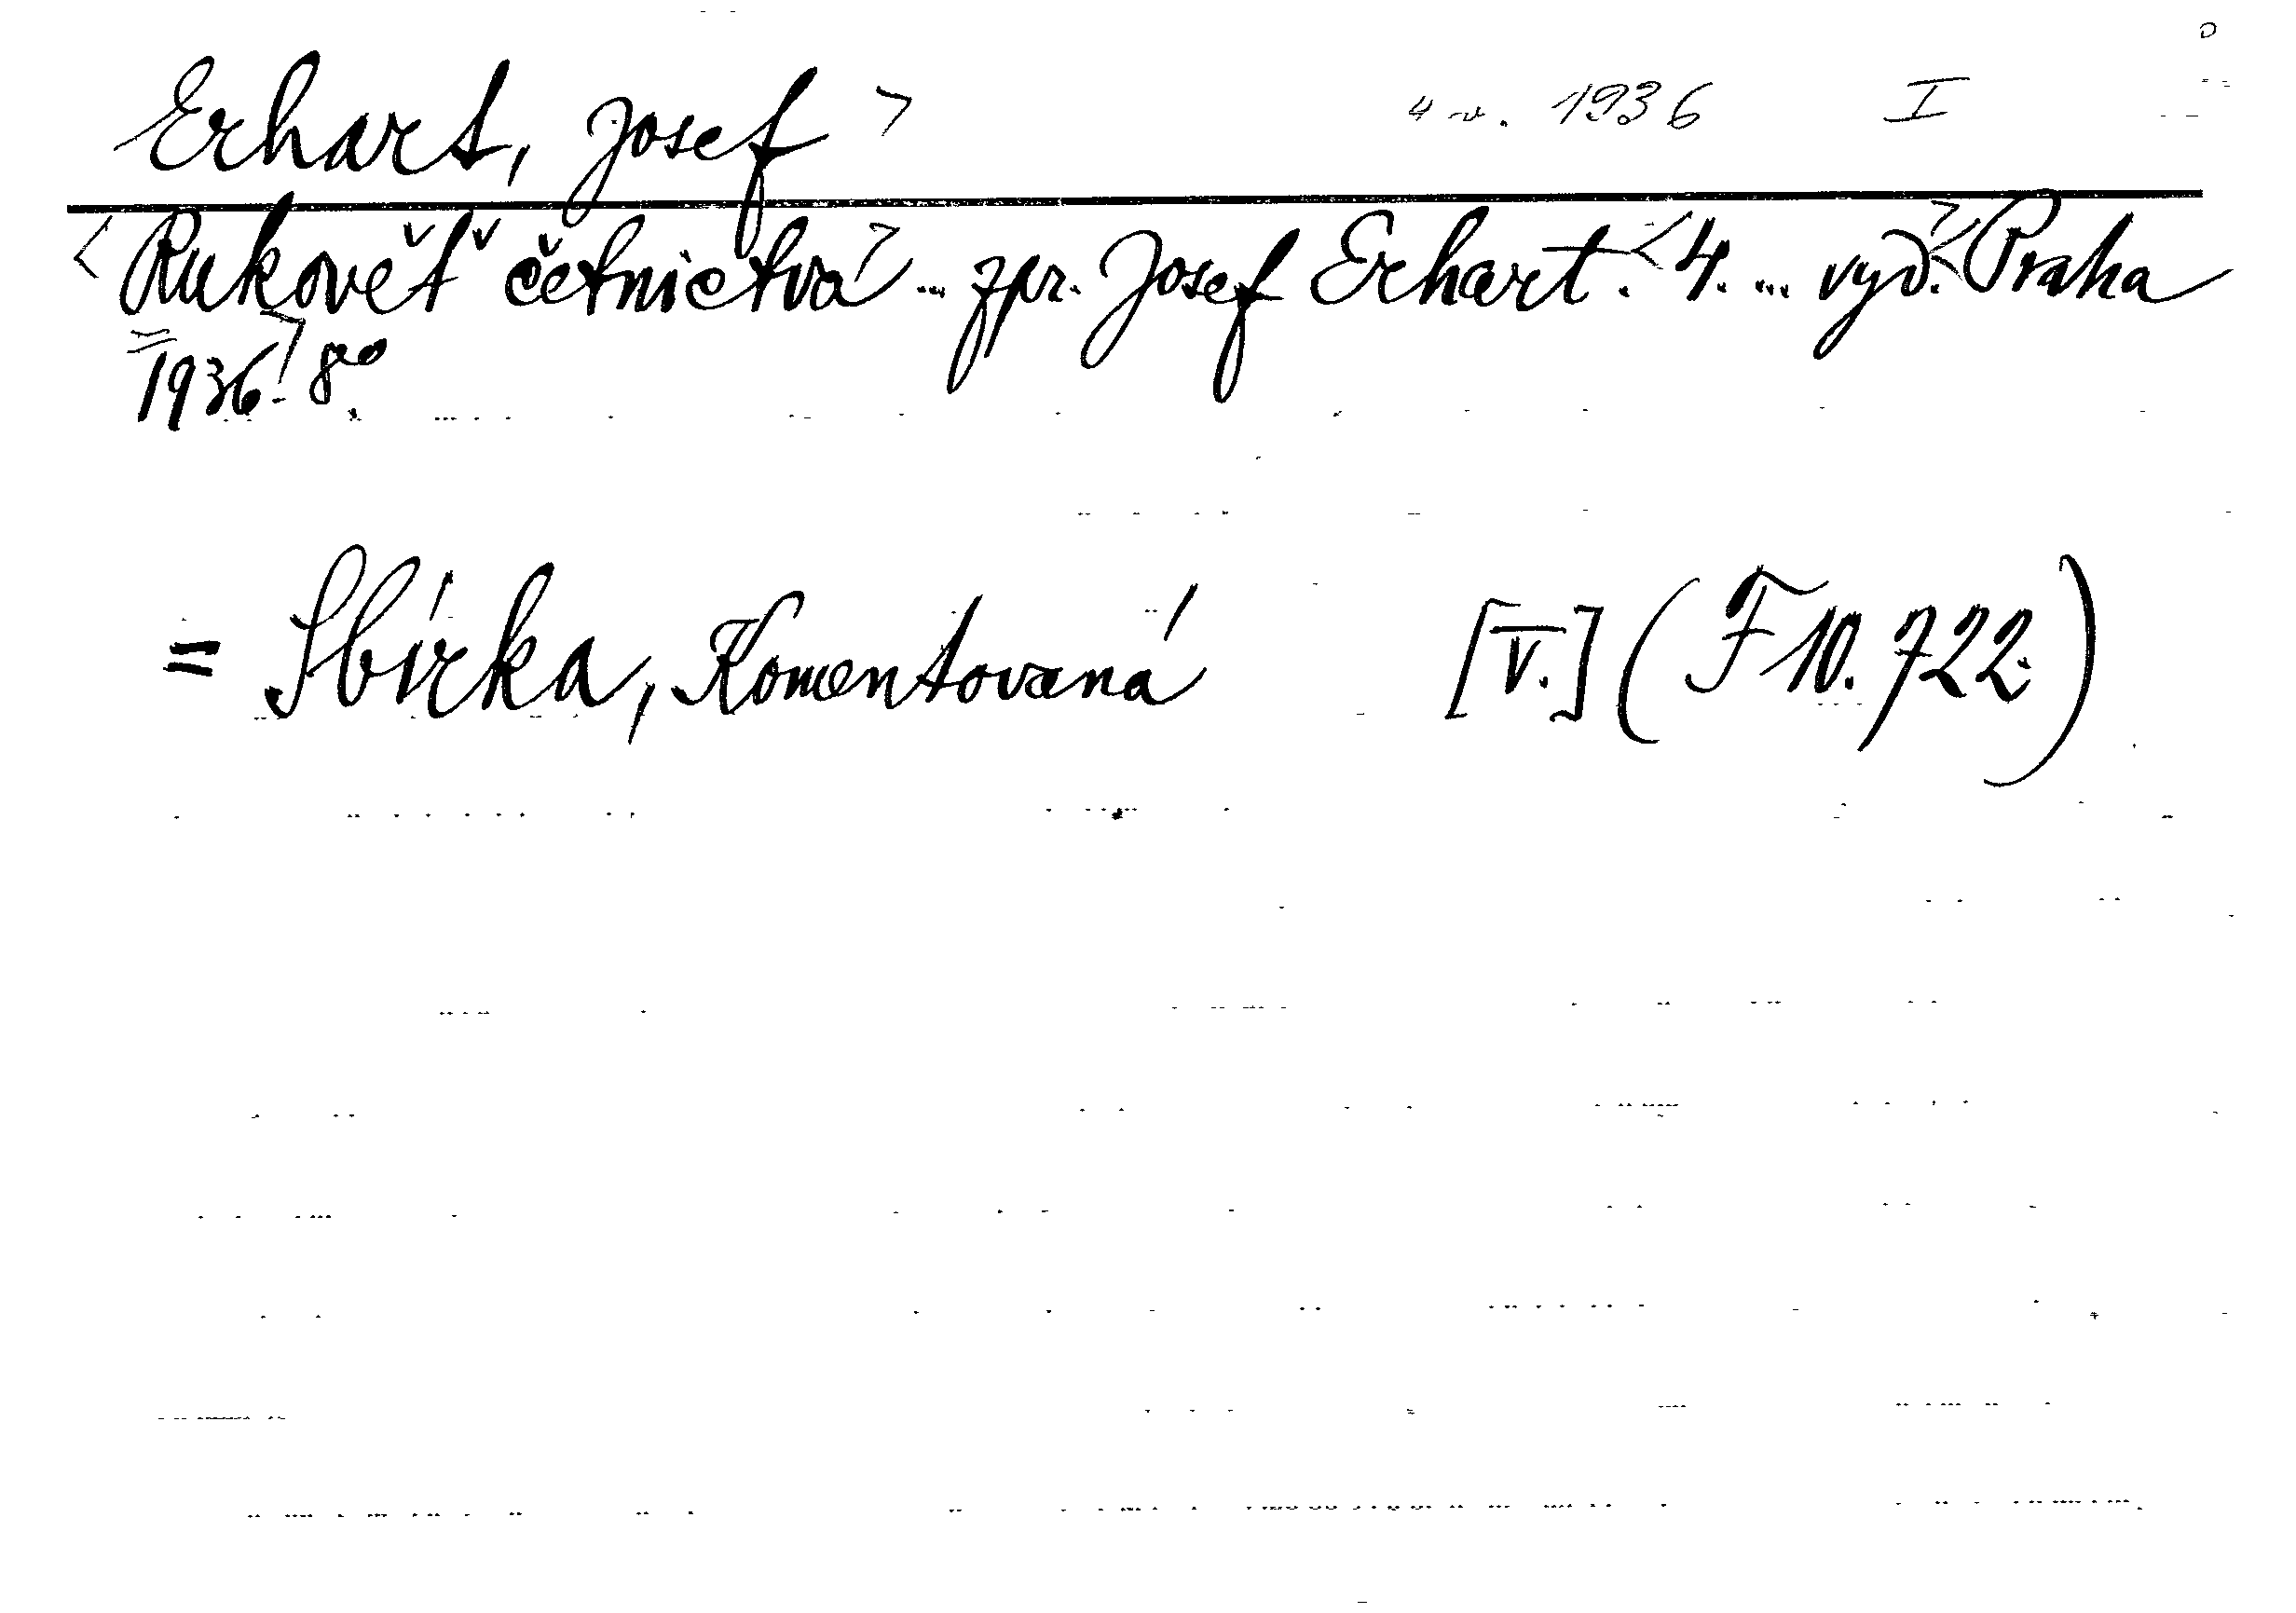 Erhart, Josef > 4 v. 1936 I
<Rukověť četnictva> ... zpr. Josef Erhart. <4. ... vyd.> <Praha
1936.> 8°.
= Sbírka, Komentovaná [V.] (F 10.722.)